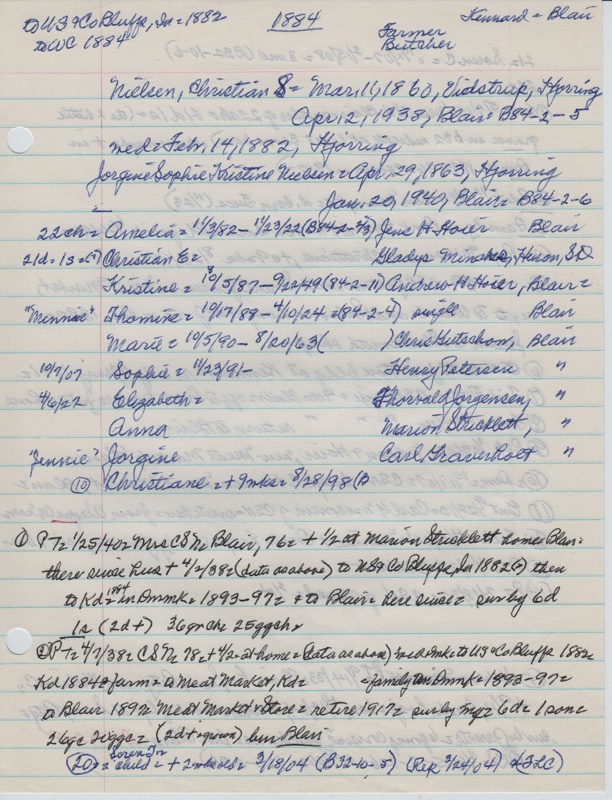 to US & Co Bluffs, Ia = 1882
1884
Kennard = Blair
to WC 1884
Farmer
Butcher
Nielsen, Christian S = Mar. 11, 1860, Vidstrup, Hjorring
Apr 12, 1938, Blair = B84-2-5
med = Feb. 14, 1882, Hjorring
Jorgine Sophie Kristine Nielsen = Apr. 29, 1863, Hjorring
= Jan. 20, 1940, Blair = B84-2-6
22 ch = Amelia = 1/3/82 - 1/23/22 (B84-2-3) Jens H Hoier Blair
21d = 1s = (?) Christian E = Gladys Huron, SD
Kristine = 9/5/87 - 9/20/49 (84-2-11) Andrew H Hoier, Blair =
"Minnie" Thomine = 10/17/89 - 4/10/24 = (84-2-4) single Blair
Marie = 10/5/90 - 8/20/63 ( ) Chris Gutschow, Blair
10/7/07 Sophie = 11/23/91 - Henry Petersen "
4/6/22 Elizabeth = Thorvald Jorgensen, "
Anna Marion Stricklett, "
"Jennie" Jorgine Carl Graverholt "
(10) Christiane = + 9 mks = 8/28/98 (B
(1) PT = 1/25/40 = Mrs CS N = Blair, 76 = + 1/2 at Marion Stricklett home Blair =
there since hus + 4/2/38 = (data as above) to US & Co Bluffs, Ia in 1882 (?) then
to Kd = 1884 = in Dnmk = 1893-97 = + to Blair = here since = sur by 6d
1s (2d+) 36 gr ch = 25 ggch =
(2) PT = 4/7/38 = CS N = 78 = + 1/2 = at home = (data as above) med = Dnmk = to US = Co Bluffs 1882
Kd 1884 = farm = Meat Market, Kd = = family in Dnmk = 1893-97 =
to Blair 1897 = Meat Market & Store = retire 1917 = sur by 6d = 1 son =
26 gc = (2d + given) bur Blair
(20) = Soren Jr child = + 2 = 3/18/04 (B32-10-5) (Rep 3/24/04)